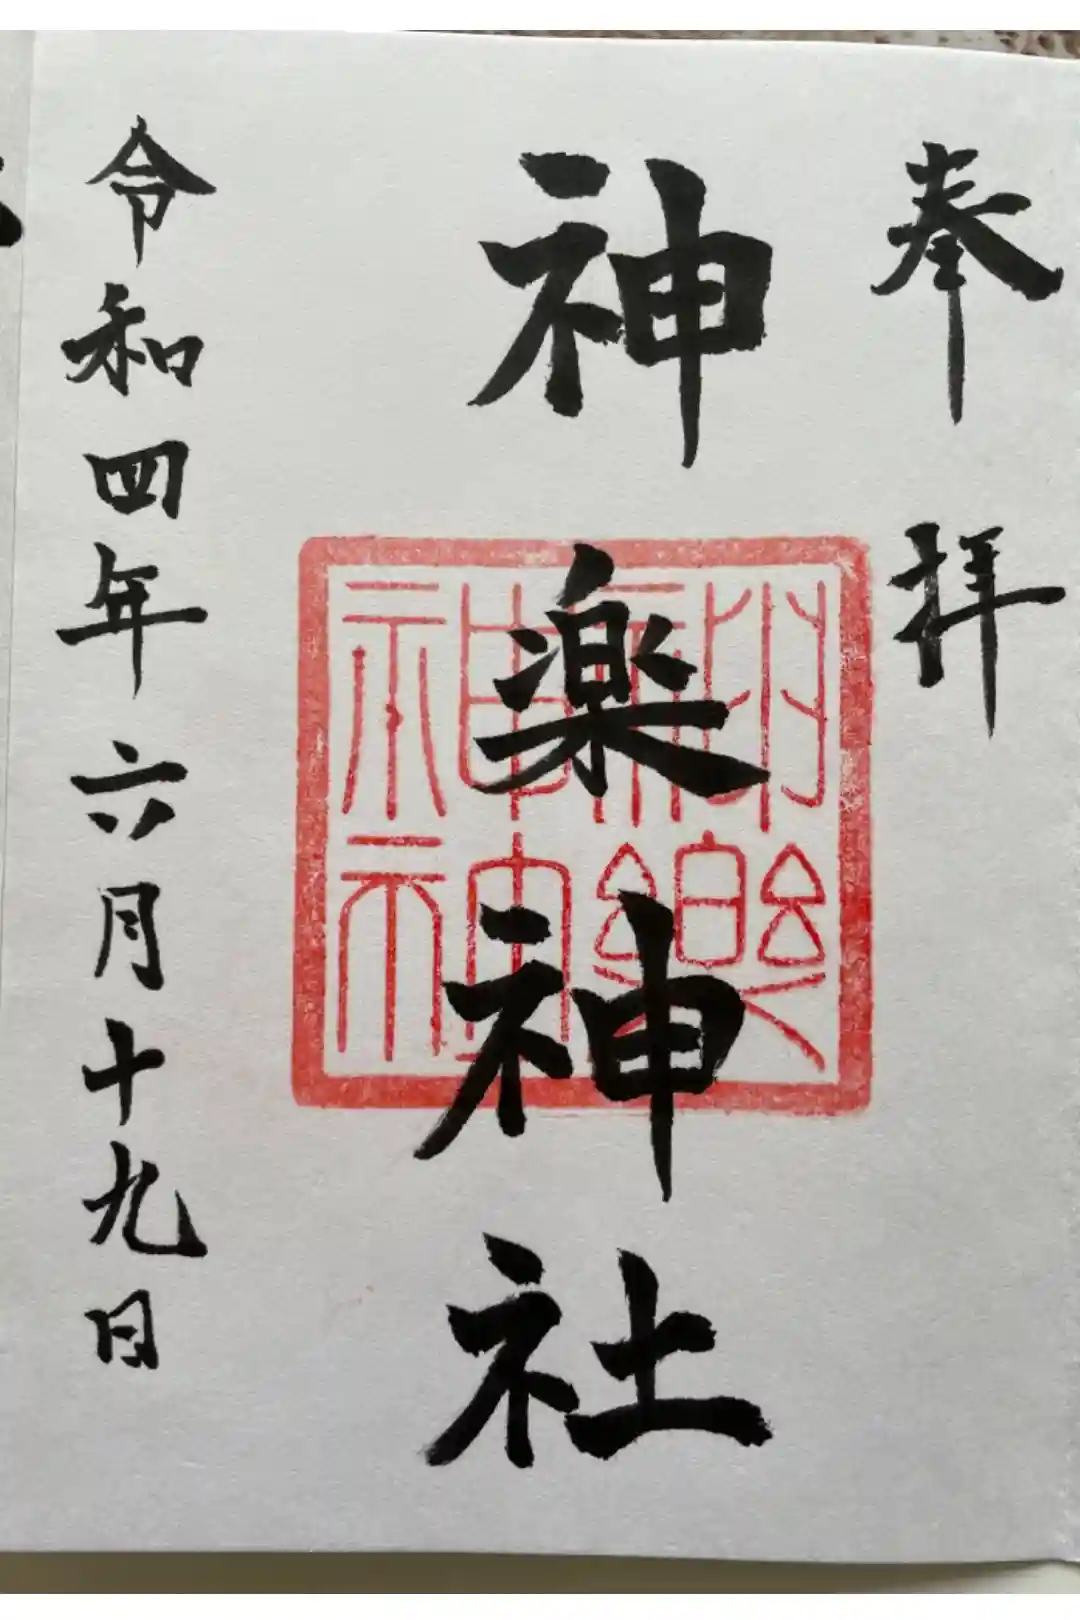 奉拝
神楽神社
神樂
神社
令和四年六月十九日